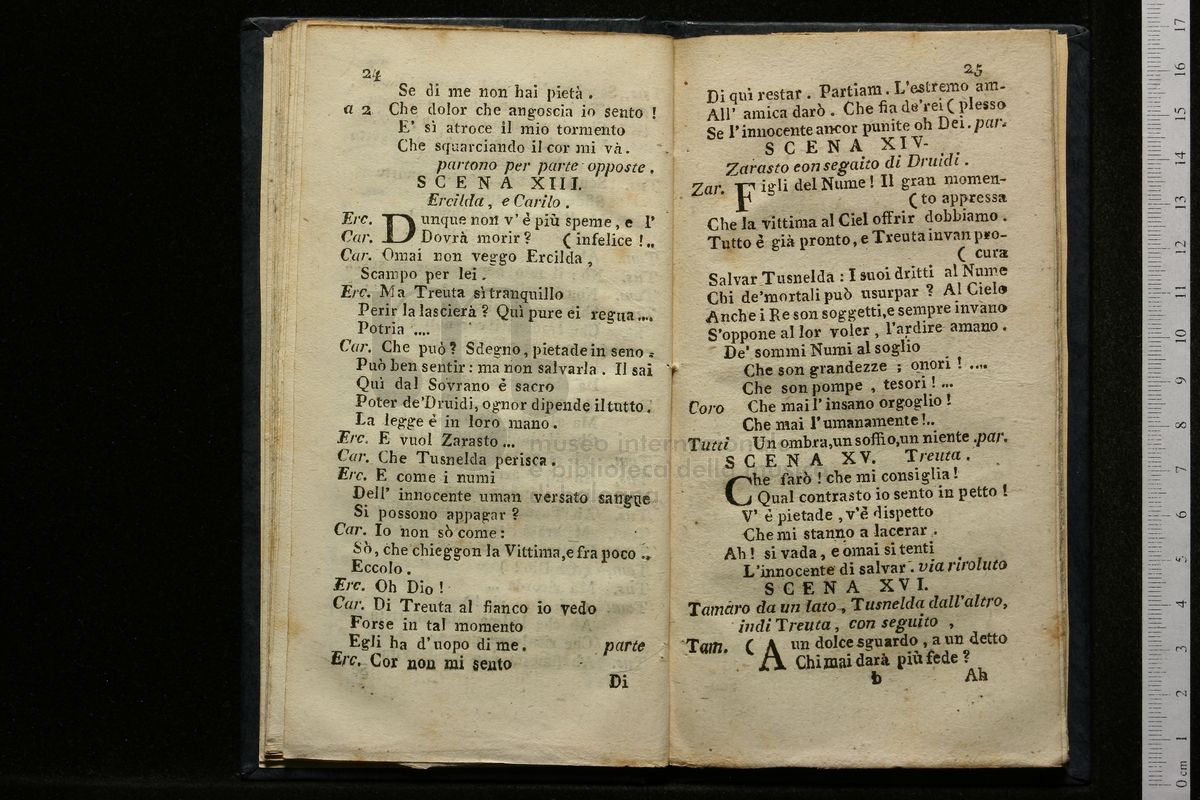 24
Se di me non hai pietà.
a 2 Che dolor che angoscia io sento !
E' sì atroce il mio tormento
Che squarciando il cor mi và.
partono per parte opposte.
SCENA XIII.
Ercilda, e Carilo.
Erc. Dunque non v'è più speme, e l'
Car. Dovrà morir? (infelice !..
Car. Omai non veggo Ercilda,
Scampo per lei.
Erc. Ma Treuta sì tranquillo
Perir la lascierà? Quì pure ei regna....
Potria ....
Car. Che può? Sdegno, pietade in seno.
Può ben sentir: ma non salvarla. Il sai
Quì dal Sovrano è sacro
Poter de'Druidi, ognor dipende il tutto.
La legge è in loro mano.
Erc. E vuol Zarasto...
Car. Che Tusnelda perisca.
Erc. E come i numi
Dell' innocente uman versato sangue
Si possono appagar?
Car. Io non sò come:
Sò, che chieggon la Vittima, e fra poco ..
Eccolo.
Erc. Oh Dio!
Car. Di Treuta al fianco io vedo
Forse in tal momento
Egli ha d'uopo di me. parte
Erc. Cor non mi sento
Di
25
Di quì restar. Partiam. L'estremo am-
All' amica darò. Che fia de'rei (plesso
Se l'innocente ancor punite oh Dei. par.
SCENA XIV-
Zarasto con segaito di Druidi.
Zar. Figli del Nume! Il gran momen-
(to appressa
Che la vittima al Ciel offrir dobbiamo.
Tutto è già pronto, e Treuta invan pro-
(cura
Salvar Tusnelda: I suoi dritti al Nume
Chi de'mortali può usurpar? Al Cielo
Anche i Re son soggetti, e sempre invano
S'oppone al lor voler, l'ardire amano.
De' sommi Numi al soglio
Che son grandezze ; onori ! ....
Che son pompe , tesori ! ...
Coro Che mai l'insano orgoglio !
Che mai l'umanamente !..
Tutti Un ombra, un soffio, un niente .par.
SCENA XV. Treuta.
Che farò ! che mi consiglia !
Qual contrasto io sento in petto !
V' è pietade, v'è dispetto
Che mi stanno a lacerar.
Ah! si vada, e omai si tenti
L'innocente di salvar. via riroluto
SCENA XVI.
Tamaro da un lato, Tusnelda dall'altro,
indi Treuta, con seguito ,
Tam. (A un dolce sguardo, a un detto
Chi mai darà più fede?
b Ah
museo internazionale
e biblioteca della musica
0 cm 1 2 3 4 5 6 7 8 9 10 11 12 13 14 15 16 17